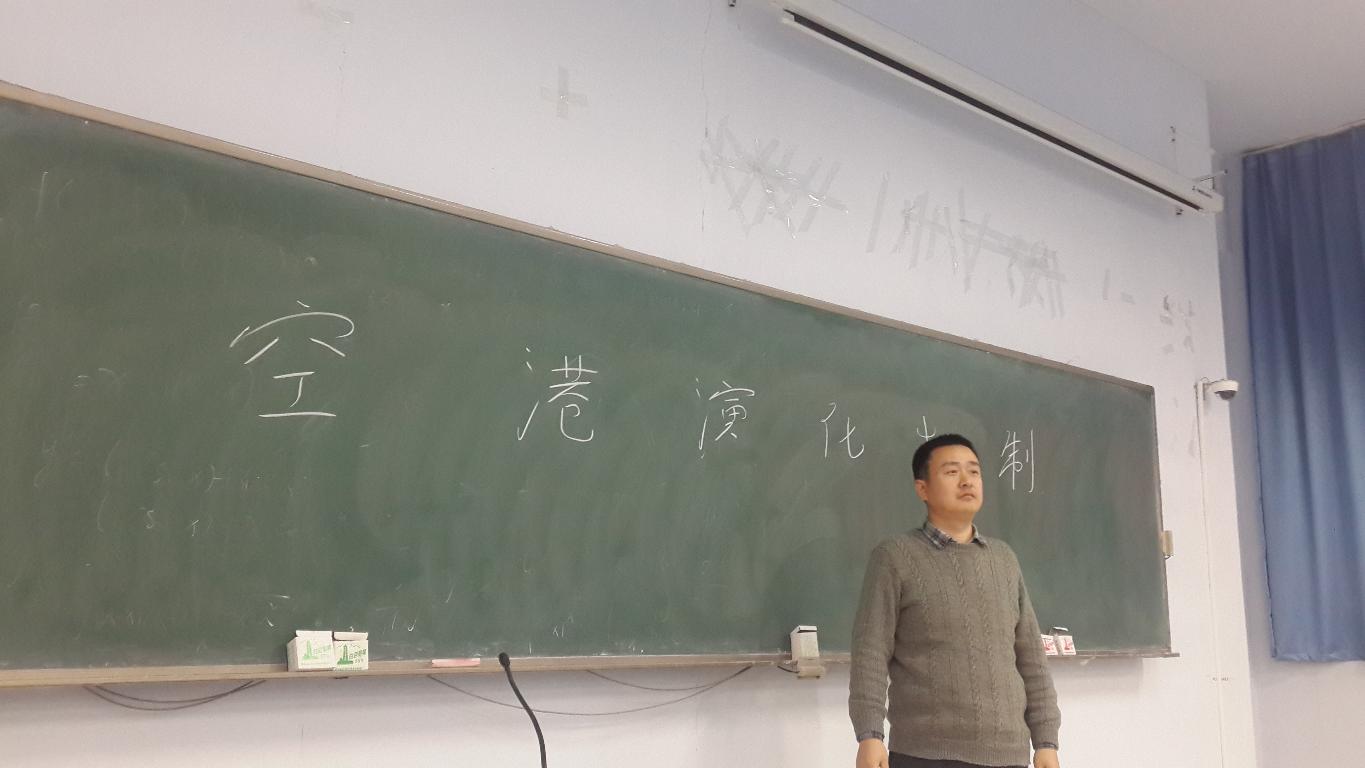 空港演化制